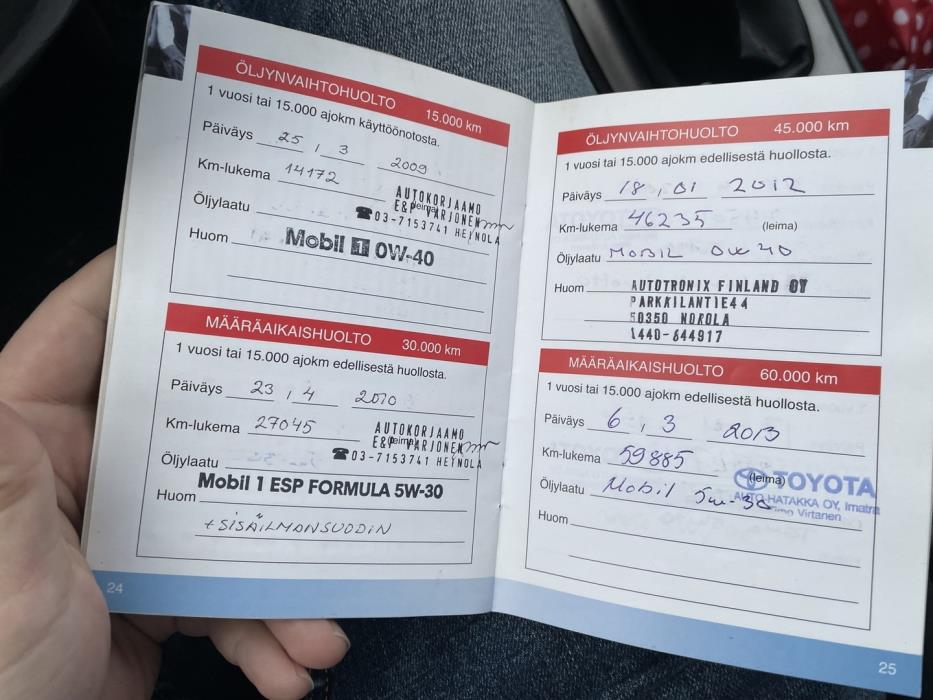 ÖLJYNVAIHTOHUOLTO 15.000 km
1 vuosi tai 15.000 ajokm käyttöönotosta.
Päiväys 25 , 3 2009
Km-lukema 14172
AUTOKORJAAMO
E&P VARJONEN
(leima)
☎03-7153741 HEINOLA
Öljylaatu
Mobil 1 0W-40
Huom
MÄÄRÄAIKAISHUOLTO 30.000 km
1 vuosi tai 15.000 ajokm edellisestä huollosta.
Päiväys 23 , 4 2010
Km-lukema 27045
AUTOKORJAAMO
E&P VARJONEN
(leima)
☎03-7153741 HEINOLA
Öljylaatu
Mobil 1 ESP FORMULA 5W-30
Huom
+ SISÄILMANSUODIN
24
ÖLJYNVAIHTOHUOLTO 45.000 km
1 vuosi tai 15.000 ajokm edellisestä huollosta.
Päiväys 18 , 01 2012
Km-lukema 46235 (leima)
Öljylaatu MOBIL 0W 40
Huom
AUTOTRONIX FINLAND OY
PARKKILANTIE44
50350 NOROLA
440-644917
MÄÄRÄAIKAISHUOLTO 60.000 km
1 vuosi tai 15.000 ajokm edellisestä huollosta.
Päiväys 6 , 3 2013
Km-lukema 59885 (leima)
TOYOTA
AUTO-HATAKKA OY, Imatra
Timo Virtanen
Öljylaatu Mobil 5w-30
Huom
25